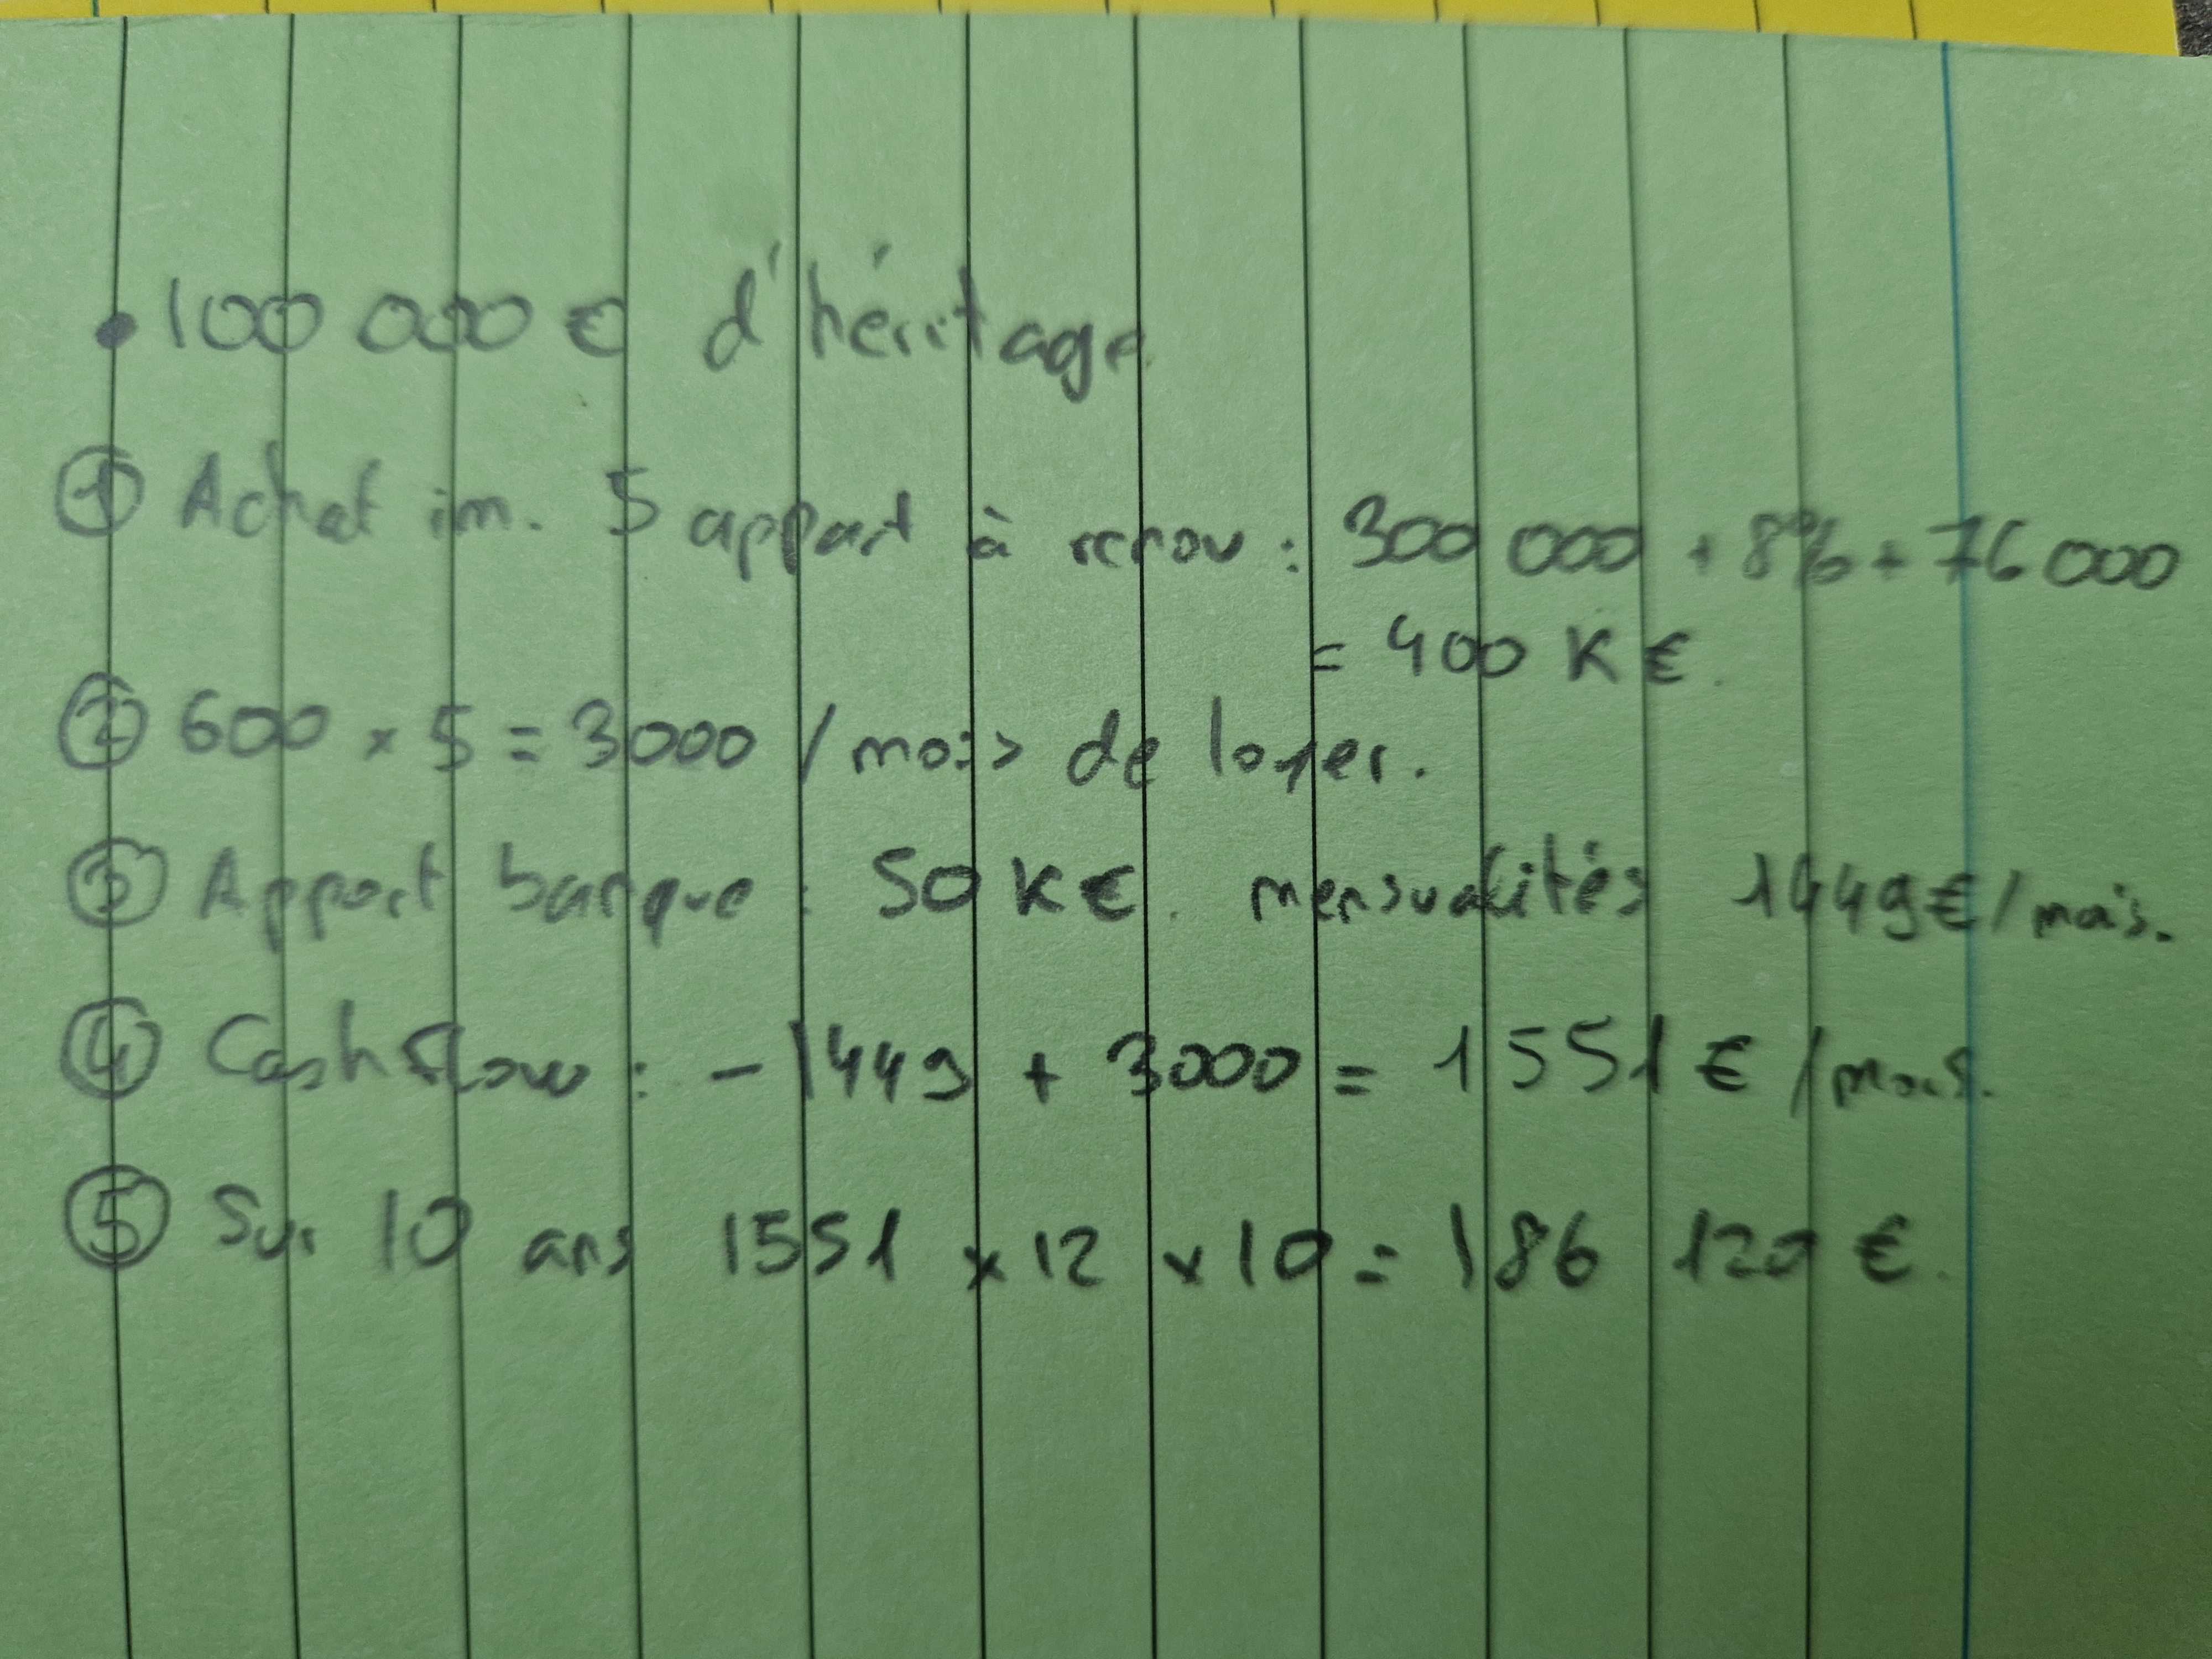 • 100 000 € d'héritage.
① Achat im. 5 appart à renov : 300 000 + 8% + 76 000
= 400 K €.
② 600 × 5 = 3000 / mois de loyer.
③ Apport banque : 50 K€. mensualités 1449€/mois.
④ Cashflow : - 1449 + 3000 = 1551 € / mois.
⑤ Sur 10 ans 1551 × 12 × 10 = 186 120 €.